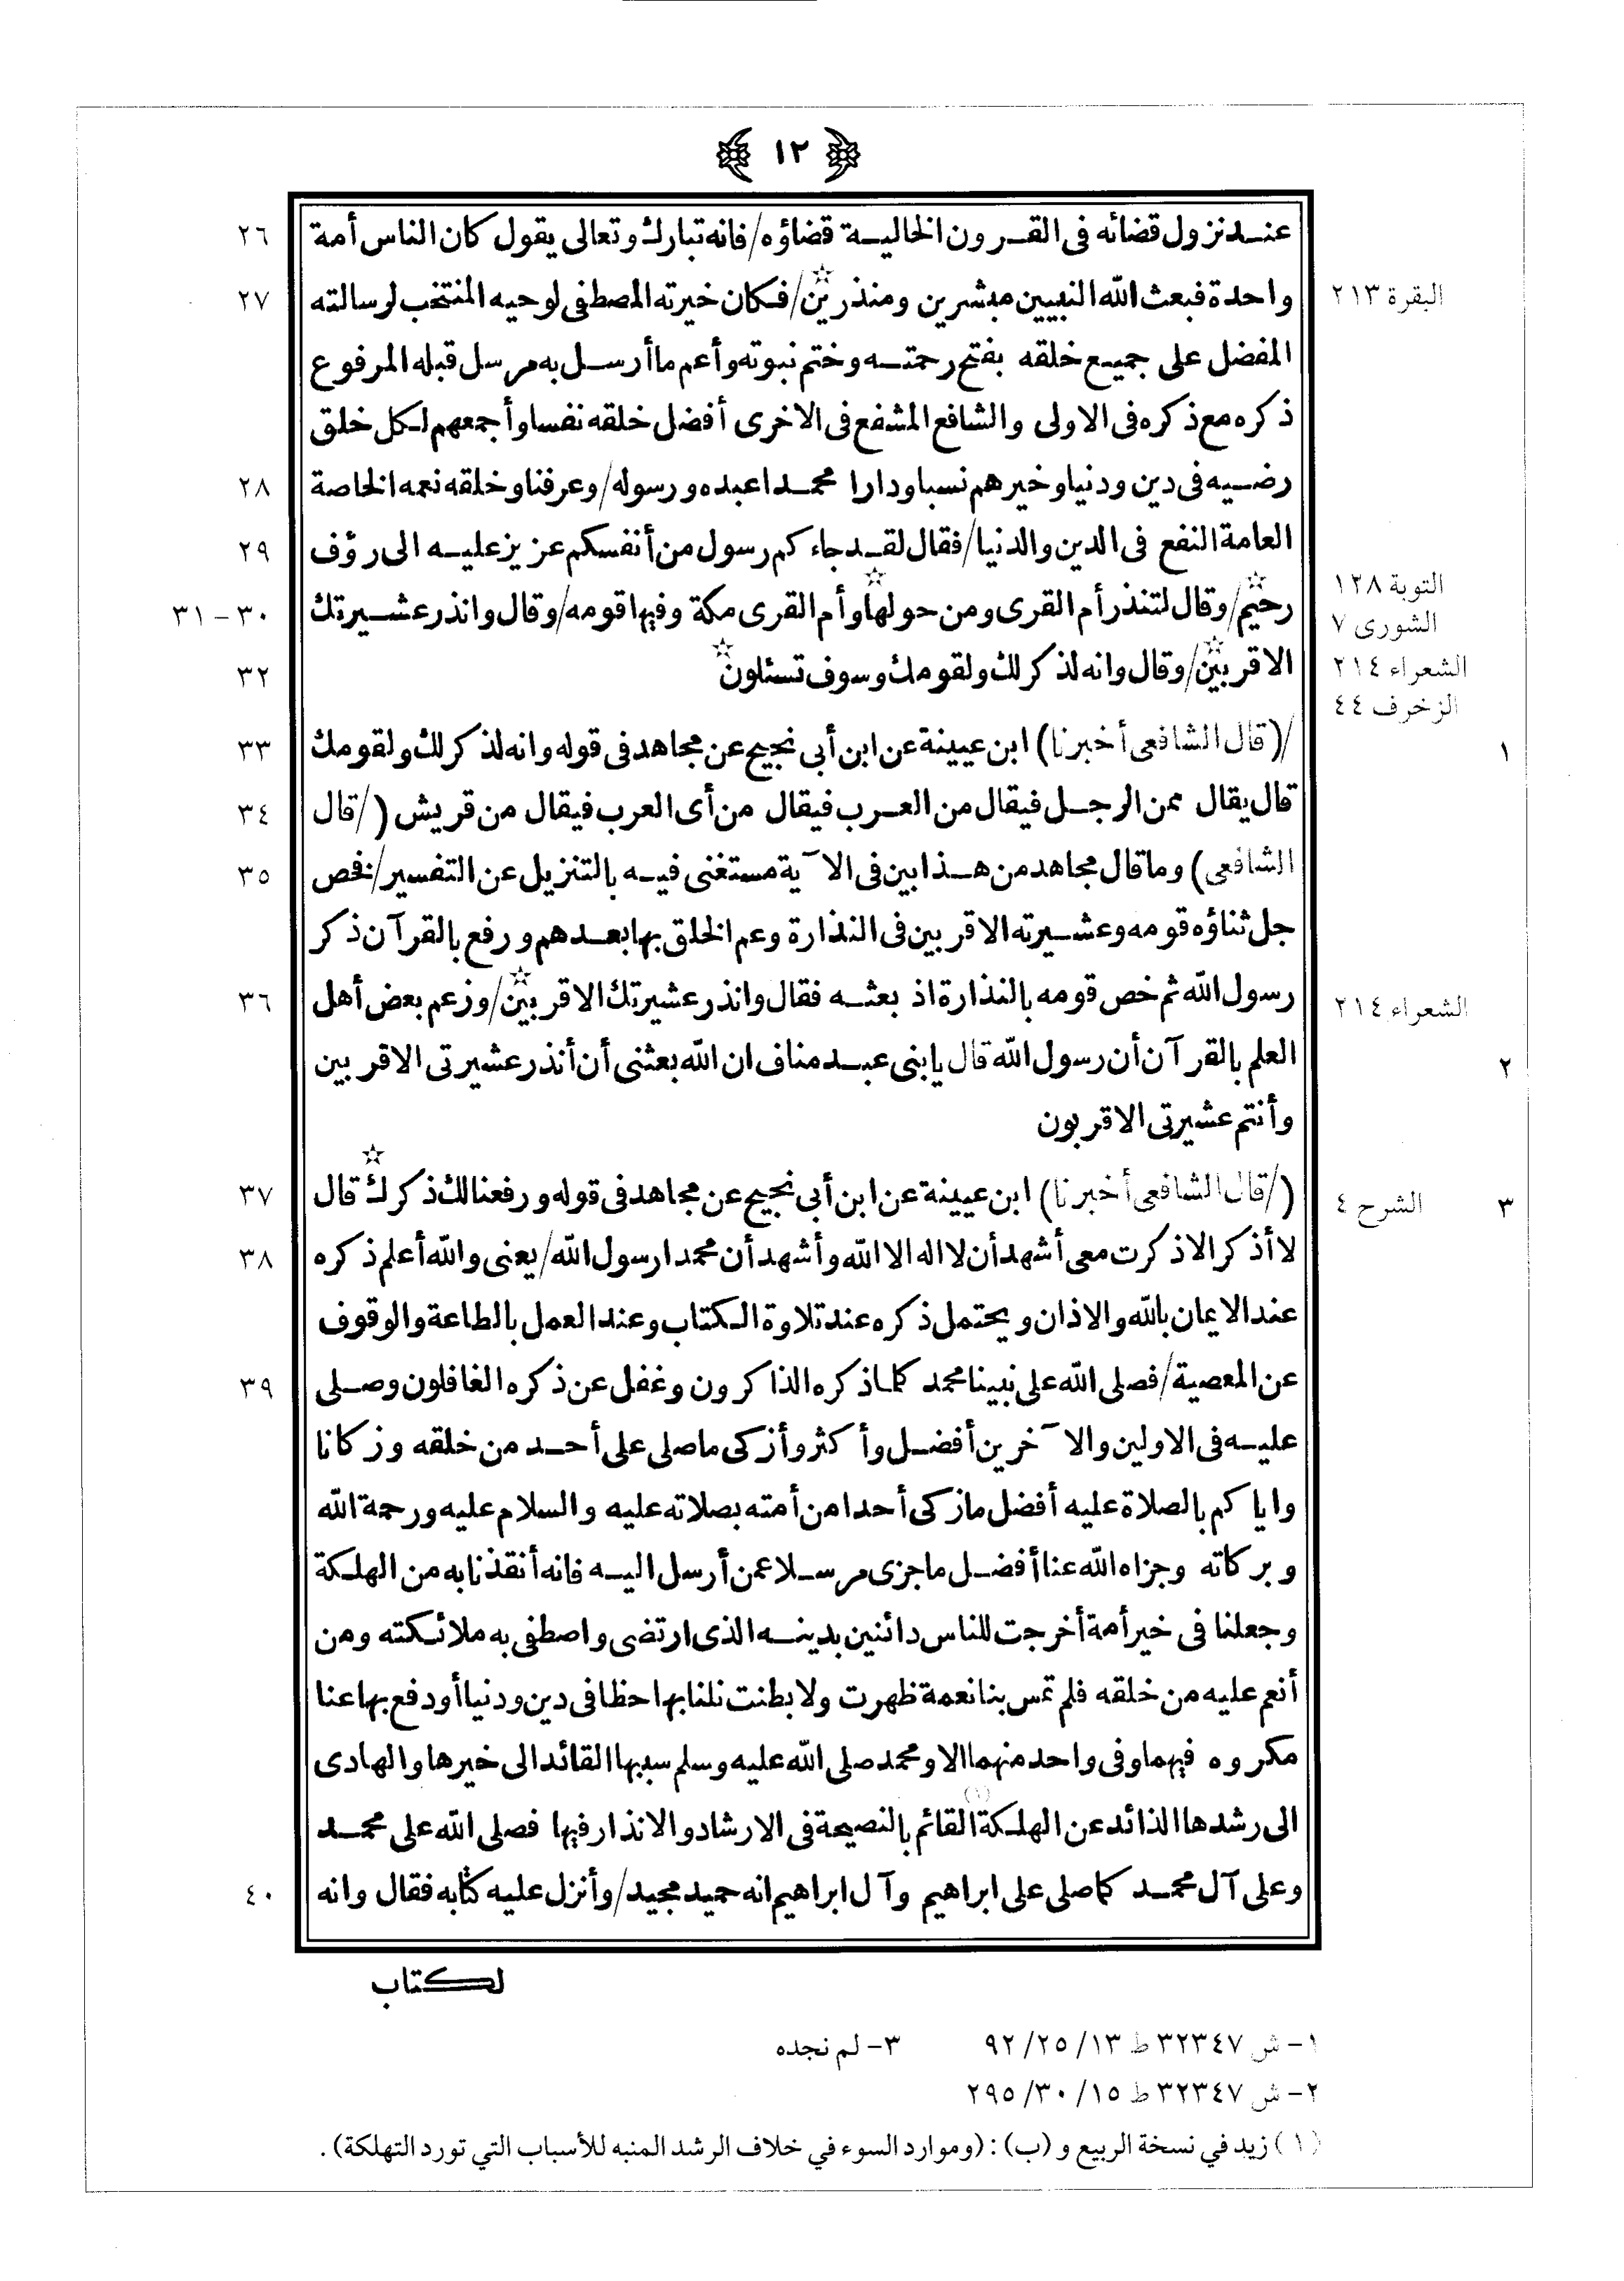 ١٢
عند نزول قضائه فى القرون الخالية قضاؤه/فانه تبارك وتعالى يقول كان الناس أمة ٢٦
البقرة ٢١٣ واحدة فبعث الله النبيين مبشرين ومنذرين☆/فكان خيرته المصطفى لوحيه المنتخب لرسالته ٢٧
المفضل على جميع خلقه بفتح رحمته وختم نبوته وأعم ما أرسل به مرسل قبله المرفوع
ذكره مع ذكره فى الاولى والشافع المشفع فى الاخرى أفضل خلقه نفسا وأجمعهم لكل خلق
رضيه فى دين ودنيا وخيرهم نسبا ودارا محمدا عبده ورسوله/وعرفنا وخلقه نعمه الخاصة ٢٨
العامة النفع فى الدين والدنيا/فقال لقد جاءكم رسول من أنفسكم عزيز عليه الى رؤف ٢٩
التوبة ١٢٨
الشورى ٧ رحيم☆/وقال لتنذر أم القرى ومن حولها☆وأم القرى مكة وفيها قومه/وقال وانذر عشيرتك ٣٠-٣١
الشعراء ٢١٤ الاقربين☆/وقال وانه لذكر لك ولقومك وسوف تسئلون☆ ٣٢
الزخرف ٤٤
١ /(قال الشافعى أخبرنا) ابن عيينة عن ابن أبى نجيح عن مجاهد فى قوله وانه لذكر لك ولقومك ٣٣
قال يقال ممن الرجل فيقال من العرب فيقال من أى العرب فيقال من قريش (/قال ٣٤
الشافعى) وما قال مجاهد من هذا بين فى الآية مستغنى فيه بالتنزيل عن التفسير/فخص ٣٥
جل ثناؤه قومه وعشيرته الاقربين فى النذارة وعم الخلق بها بعدهم ورفع بالقرآن ذكر
الشعراء ٢١٤ رسول الله ثم خص قومه بالنذارة اذ بعثه فقال وانذر عشيرتك الاقربين☆/وزعم بعض أهل ٣٦
٢ العلم بالقرآن أن رسول الله قال يا بنى عبد مناف ان الله بعثنى أن أنذر عشيرتى الاقربين
وأنتم عشيرتى الاقربون
٣ الشرح ٤ (/قال الشافعى أخبرنا) ابن عيينة عن ابن أبى نجيح عن مجاهد فى قوله ورفعنا لك ذكرك☆ قال ٣٧
لا أذكر الا ذكرت معى أشهد أن لا اله الا الله وأشهد أن محمدا رسول الله/يعنى والله أعلم ذكره ٣٨
عند الايمان بالله والاذان ويحتمل ذكره عند تلاوة الكتاب وعند العمل بالطاعة والوقوف
عن المعصية/فصلى الله على نبينا محمد كلما ذكره الذاكرون وغفل عن ذكره الغافلون وصلى ٣٩
عليه فى الاولين والآخرين أفضل وأكثر وأزكى ما صلى على أحد من خلقه وزكانا
واياكم بالصلاة عليه أفضل ما زكى أحدا من أمته بصلاته عليه والسلام عليه ورحمة الله
وبركاته وجزاه الله عنا أفضل ما جزى مرسلا عمن أرسل اليه فانه أنقذنا به من الهلكة
وجعلنا فى خير أمة أخرجت للناس دائنين بدينه الذى ارتضى واصطفى به ملائكته ومن
أنعم عليه من خلقه فلم تمس بنا نعمة ظهرت ولا بطنت نلنا بها حظا فى دين ودنيا أو دفع بها عنا
مكروه فيهما وفى واحد منهما الا ومحمد صلى الله عليه وسلم سببها القائد الى خيرها والهادى
الى رشدها الذائد عن الهلكة(١) القائم بالنصيحة فى الارشاد والانذار فيها فصلى الله على محمد
وعلى آل محمد كما صلى على ابراهيم وآل ابراهيم انه حميد مجيد/وأنزل عليه كتابه فقال وانه ٤٠
لكتاب
١- ش ٣٢٣٤٧ ط ١٣/٢٥/٩٢ ٣- لم نجده
٢- ش ٣٢٣٤٧ ط ١٥/٣٠/٢٩٥
(١) زيد في نسخة الربيع و (ب) : (وموارد السوء في خلاف الرشد المنبه للأسباب التي تورد التهلكة) .